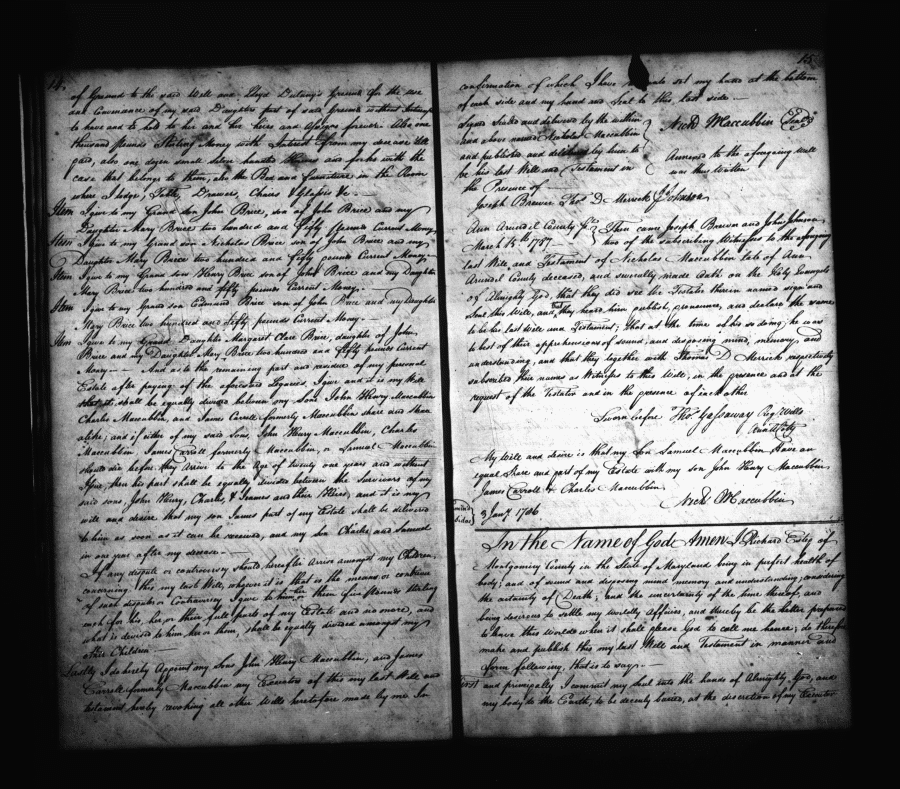 14.
of Ground to the said Well and Lloyd Dulany's Ground for the use
and Convenience of my said Daughters part of said Ground without
to have and to hold to her and her heirs and Assigns forever. Also one
thousand pounds Sterling Money with Interest from my decease till
paid, also one dozen small silver handled Knives and forks with the
case that belongs to them, also the Bed and furniture in the Room
where I lodge, Table, Drawers, Chairs & Glasses &c.
Item I give to my Grand son John Brice, son of John Brice and my
Daughter Mary Brice two hundred and fifty pounds Current Money.
Item I give to my Grand son Nicholas Brice son of John Brice and my
Daughter Mary Brice two hundred and fifty pounds Current Money.
Item I give to my Grand son Henry Brice son of John Brice and my Daughter
Mary Brice two hundred and fifty pounds Current Money.
Item I give to my Grand son Edmund Brice son of John Brice and my Daughter
Mary Brice two hundred and fifty pounds Current Money.
Item I give to my Grand Daughter Margaret Clare Brice, daughter of John
Brice and my Daughter Mary Brice two hundred and fifty pounds Current
Money. And as to the remaining part and residue of my personal
Estate after paying of the aforesaid Legacies, I give and it is my Will
shall be equally divided between my Sons John Henry Maccubbin
Charles Maccubbin, and James Carroll formerly Maccubbin share and share
alike; and if either of my said Sons, John Henry Maccubbin, Charles
Maccubbin James Carroll formerly Maccubbin, or Samuel Maccubbin
should die before they arrive to the Age of twenty one years and without
Issue, then his part shall be equally divided between the Survivors of my
said sons, John Henry, Charles, & James and their Heirs, and it is my
will and desire that my son James part of my Estate shall be delivered
to him as soon as it can be received, and my son Charles and Samuel
in one year after my decease.
If any dispute or controversy should hereafter arise amongst my Children
concerning this my last Will, whoever it is that is the means or
of such dispute or Controversy, I give to him or them five pounds sterling
each for his, her, or their full parts of my Estate and no more, and
what is devised to him her or them, shall be equally divided amongst my
other Children
Lastly I do hereby Appoint my Sons John Henry Maccubbin, and James
Carroll formerly Maccubbin my Executors of this my last Will and
testament hereby revoking all other Wills heretofore made by me In
15.
confirmation of which I have set my hand at the bottom
of each side and my hand and Seal to this last side
Signed Sealed and delivered by the within
and above named Nicholas Maccubbin
and published and delivered by him to
be his last Will and Testament in
the Presence of
Nichs Maccubbin Seal
Annexed to the aforegoing will
was thus written
Joseph Brewer Thos D Merrick Jno Johnson
Ann Arundel County Ss.
March 15th 1787
Then came Joseph Brewer and John Johnson
two of the subscribing Witnesses to the aforegoing
last Will and Testament of Nicholas Maccubbin late of Ann
Arundel County deceased, and severally made Oath on the Holy Evangels
of Almighty God, that they did see the Testator therein named sign and
Seal this Will, and that they heard him publish, pronounce, and declare the same
to be his last Will and Testament; that at the time of his so doing; he was
to best of their apprehensions of sound, and disposing mind, memory, and
understanding, and that they together with Thomas D Merrick respectively
subscribed their names as Witnesses to this Will, in the presence and at the
request of the Testator and in the presence of each other
Sworn before Tho: Gassaway Reg: Wills
Ann A. Cty
My Will and desire is that my Son Samuel Maccubbin Have an
equal Share and part of my Estate with my son John Henry Maccubbin
James Carroll & Charles Maccubbin
Nichs Maccubbin
3 Jany. 1786
In the Name of God Amen I Richard Estep of
Montgomery County in the State of Maryland being in perfect health of
body; and of sound and disposing mind memory and understanding, considering
the certainty of Death; and the uncertainty of the time thereof; and
being desirous to settle my worldly Affairs, and thereby be the better prepared
to leave this World when it shall please God to call me hence; do therefore
make and publish this my last Will and Testament in manner and
form following, that is to say,
First and principally I commit my Soul into the hands of Almighty God, and
my body to the Earth, to be decently buried, at the discretion of my Executor